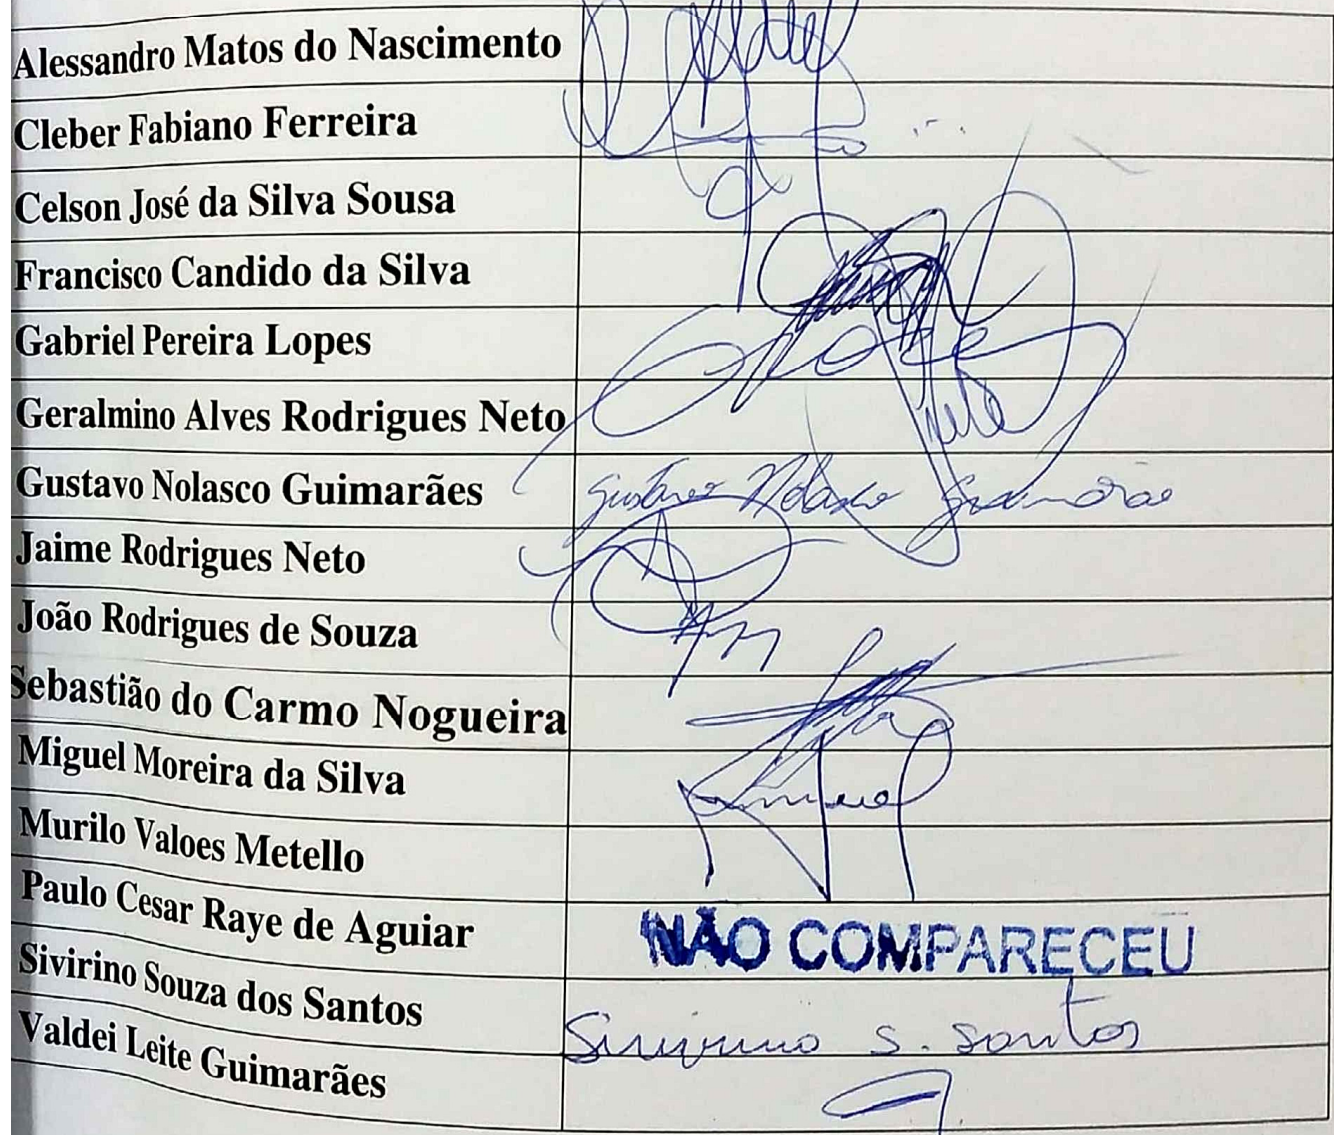 Alessandro Matos do Nascimento
Cleber Fabiano Ferreira
Celson José da Silva Sousa
Francisco Candido da Silva
Gabriel Pereira Lopes
Geralmino Alves Rodrigues Neto
Gustavo Nolasco Guimarães Gustavo Nolasco Guimarães
Jaime Rodrigues Neto
João Rodrigues de Souza
Sebastião do Carmo Nogueira
Miguel Moreira da Silva
Murilo Valoes Metello
Paulo Cesar Raye de Aguiar NÃO COMPARECEU
Sivirino Souza dos Santos Sivirino S. Santos
Valdei Leite Guimarães